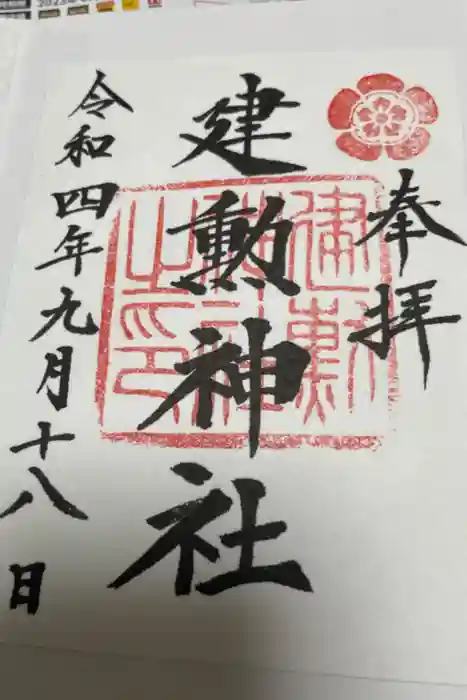 奉拝
建勲神社
建勲神社之印
令和四年九月十八日